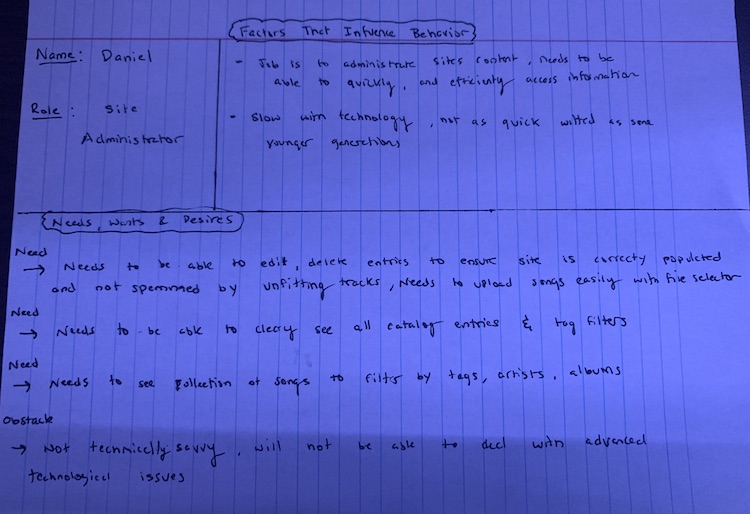 Factors That Infuence Behavior
Name: Daniel
Role: Site
Administrator
- Job is to administrate sites content, needs to be
able to quickly, and efficienty access information
- Slow with technology, not as quick witted as some
younger generations
Needs, Wants & Desires
Need
→ Needs to be able to edit, delete entries to ensure site is correcty populated
and not spammed by unfitting tracks, Needs to upload songs easily with file selector
Need
→ Needs to be able to cleary see all catalog entries & tag filters
Need
→ Needs to see collection of songs to filter by tags, artists, albums
Obstacle
→ Not technically savvy, will not be able to deal with advanced
technological issues